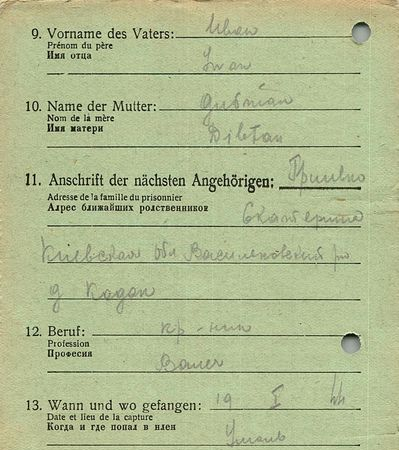 9. Vorname des Vaters: Иван
Prénom du père
Имя отца Iwan
10. Name der Mutter:
Nom de la mère
Имя матери
11. Anschrift der nächsten Angehörigen:
Adresse de la famille du prisonnier
Адрес ближайших родственников Екатерина
Киевская обл Васильковский
д
12. Beruf: кр-нин
Profession
Професия Bauer
13. Wann und wo gefangen: 19 I 44
Date et lieu de la capture
Когда и где попал в плен Умань